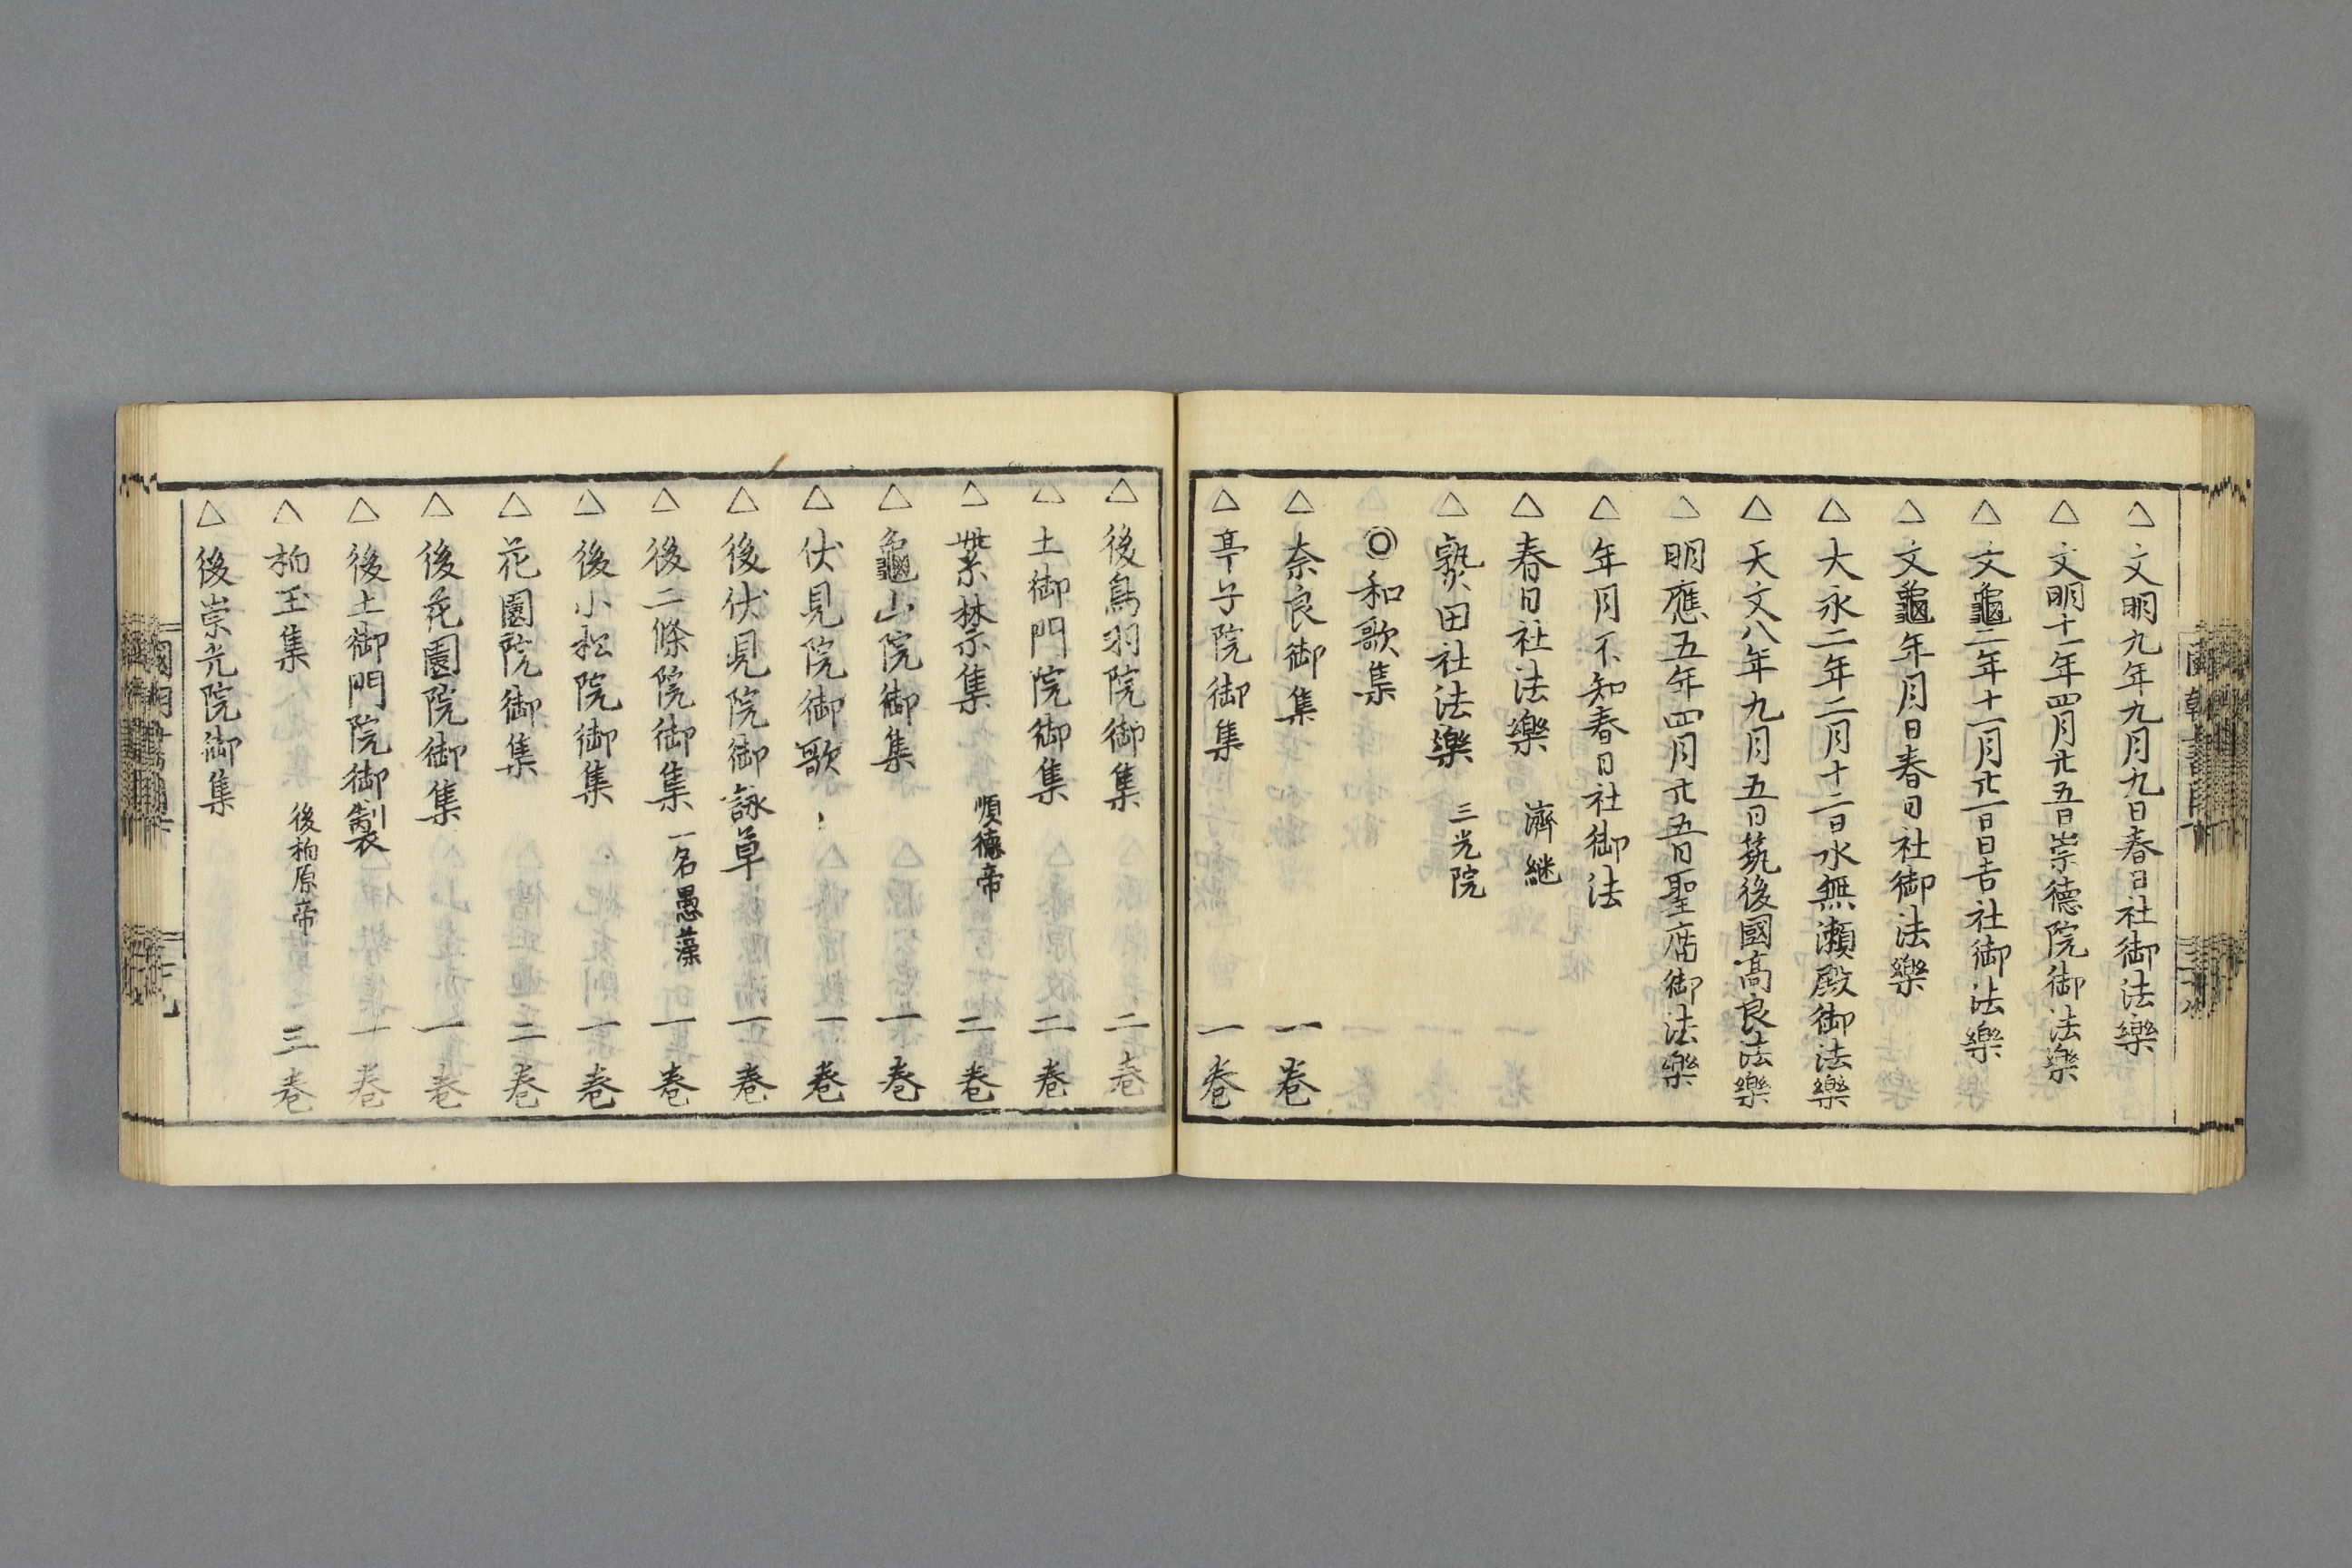 △文明九年九月九日春日社御法樂
△文明十一年四月廿五日崇德院御法樂
△文龜二年十一月廿一日日吉社御法樂
△文龜年月日春日社御法樂
△大永二年二月十二日水無瀬殿御法樂
△天文八年九月五日筑後國高良法樂
△明應五年四月廿五日聖庿御法樂
△年月不知春日社御法
△春日社法樂 濟継
△熱田社法樂 三光院
◎和歌集
△奈良御集 一巻
△亭子院御集 一巻
△後鳥羽院御集 二巻
△土御門院御集 二巻
△紫禁集 順德帝 二巻
△龜山院御集 一巻
△伏見院御歌 一巻
△後伏見院御詠草 一巻
△後二條院御集 一名愚藻 一巻
△後小松院御集 一巻
△花園院御集 二巻
△後花園院御集 一巻
△後土御門院御製 一巻
△柏玉集 後柏原帝 三巻
△後崇光院御集